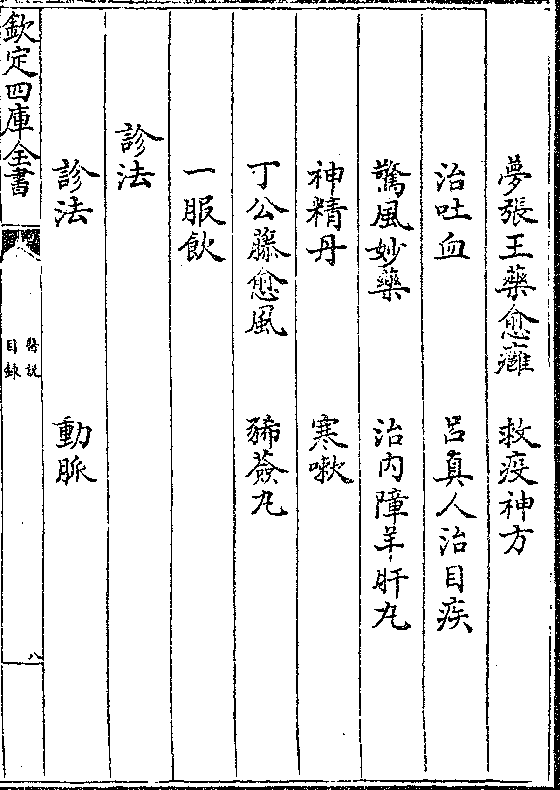 夢張王藥愈癰　救疫神方
治吐血　吕真人治目疾
驚風妙藥　治内障羊肝丸
神精丹　寒嗽
丁公藤愈風　豨薟丸
一服飲
診法
診法　動脈
欽定四庫全書
醫説
目録
八